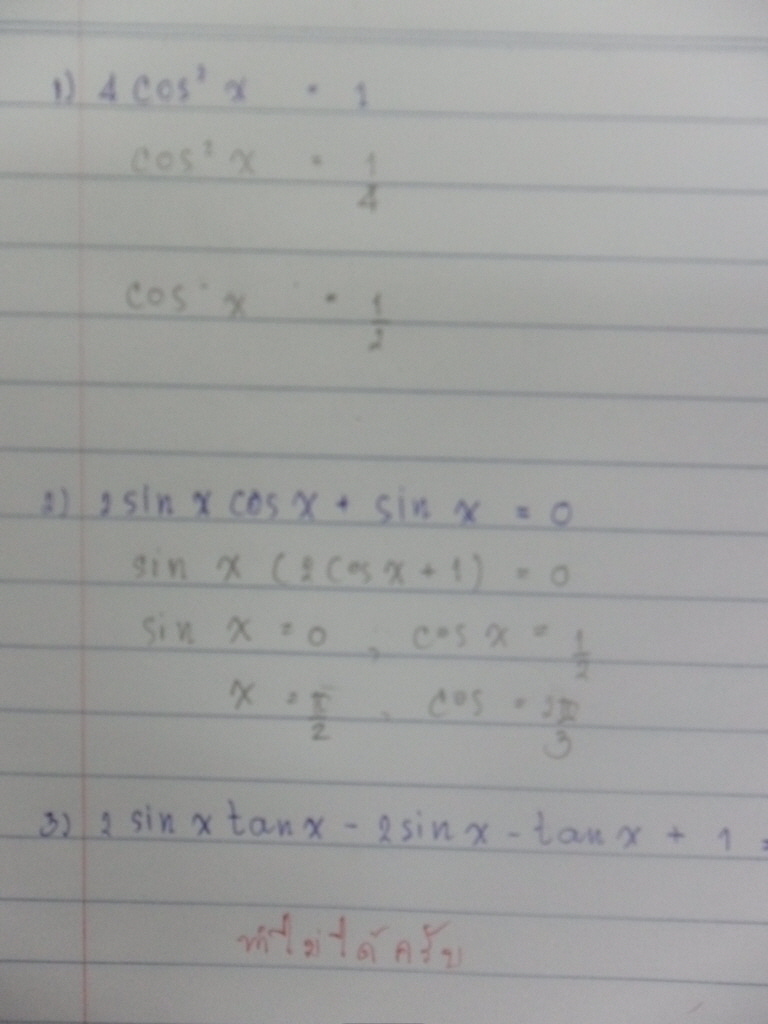 1) 4 cos² x = 1
cos² x = 1/4
cos x = 1/2
2) 2 sin x cos x + sin x = 0
sin x (2 cos x + 1) = 0
sin x = 0 , cos x = 1/2
x = π/2 , cos = 2π/3
3) 2 sin x tan x - 2 sin x - tan x + 1 =
ทำไม่ได้ครับ